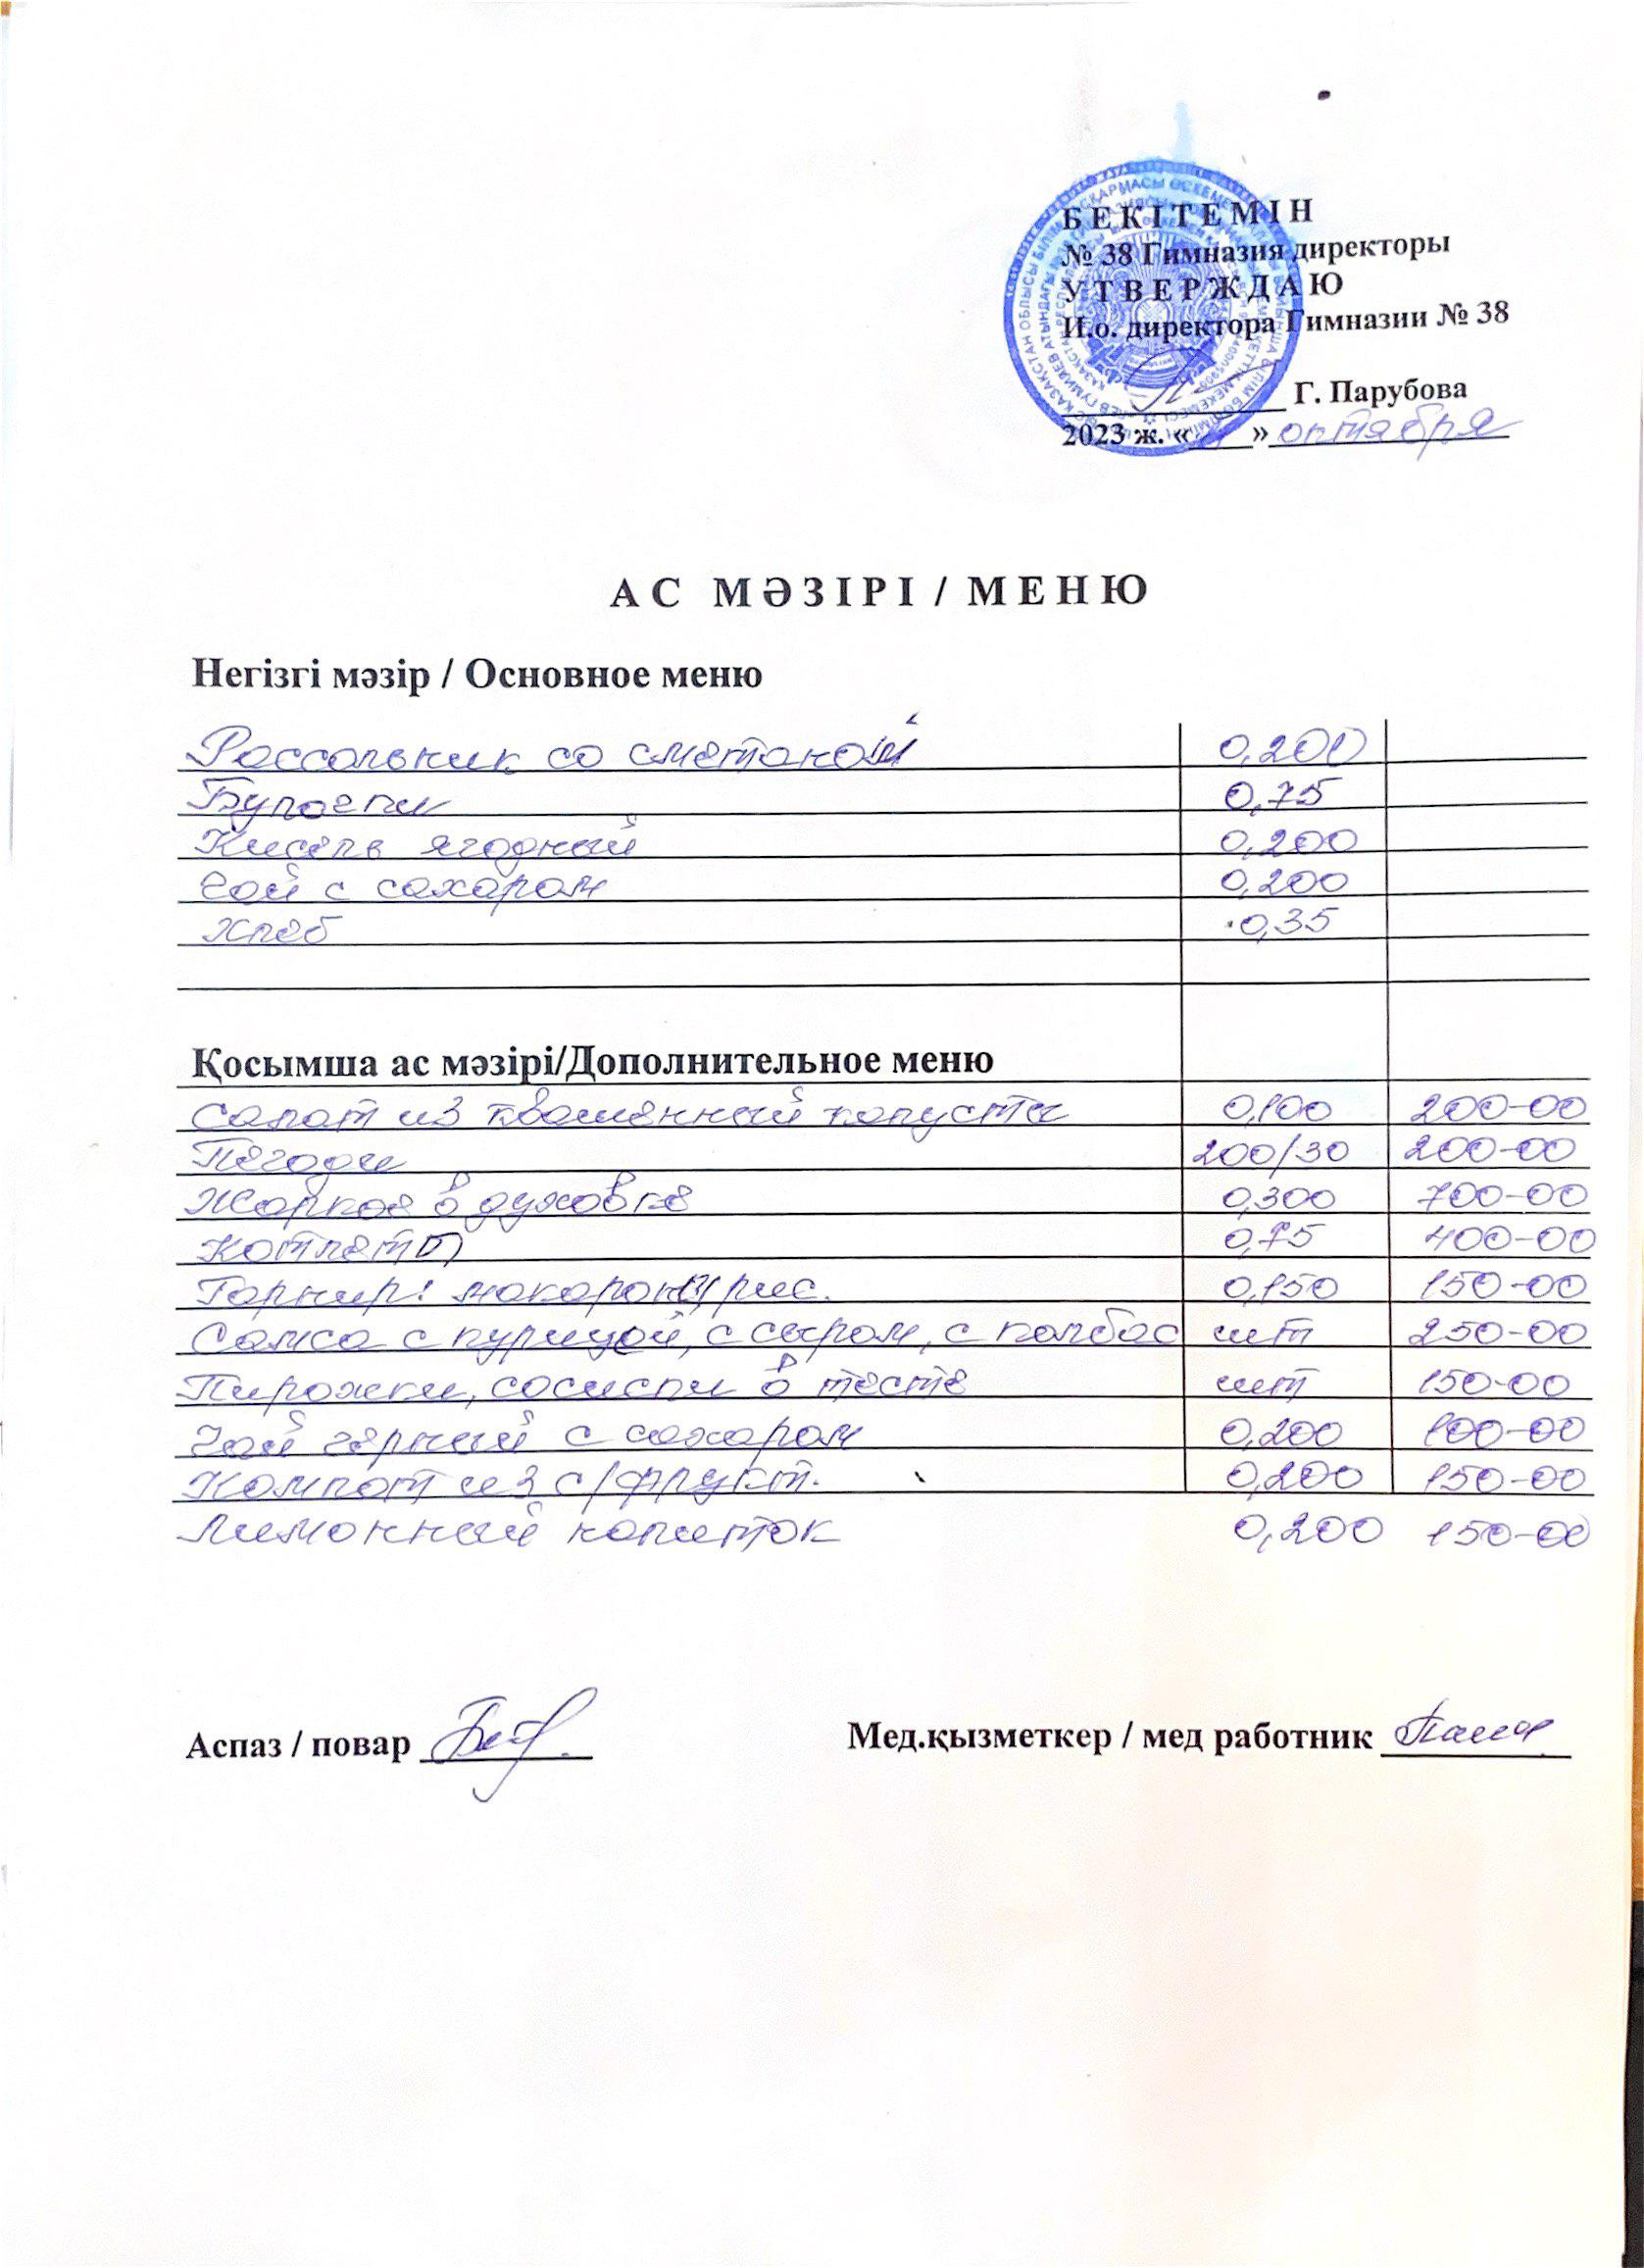 БЕКІТЕМІН
№ 38 Гимназия директоры
УТВЕРЖДАЮ
И.о. директора Гимназии № 38
Г. Парубова
2023 ж. « » октября
АС МӘЗІРІ / МЕНЮ
Негізгі мәзір / Основное меню
Рассольник со сметаной 0,200
Булочки 0,75
Кисель ягодный 0,200
Чай с сахаром 0,200
Хлеб 0,35
Қосымша ас мәзірі/Дополнительное меню
Салат из квашенный капусты 0,100 200-00
200/30 200-00
Жаркое в духовке 0,300 700-00
Котлеты 0,75 400-00
Гарнир: макароны, рис. 0,150 150-00
Самса с курицей, с сыром, с колбас шт 250-00
Пирожки, сосиски в тесте шт 150-00
Чай чёрный с сахаром 0,200 100-00
Компот из с/фрукт. 0,200 150-00
Лимонный напиток 0,200 150-00
Аспаз / повар Мед.қызметкер / мед работник